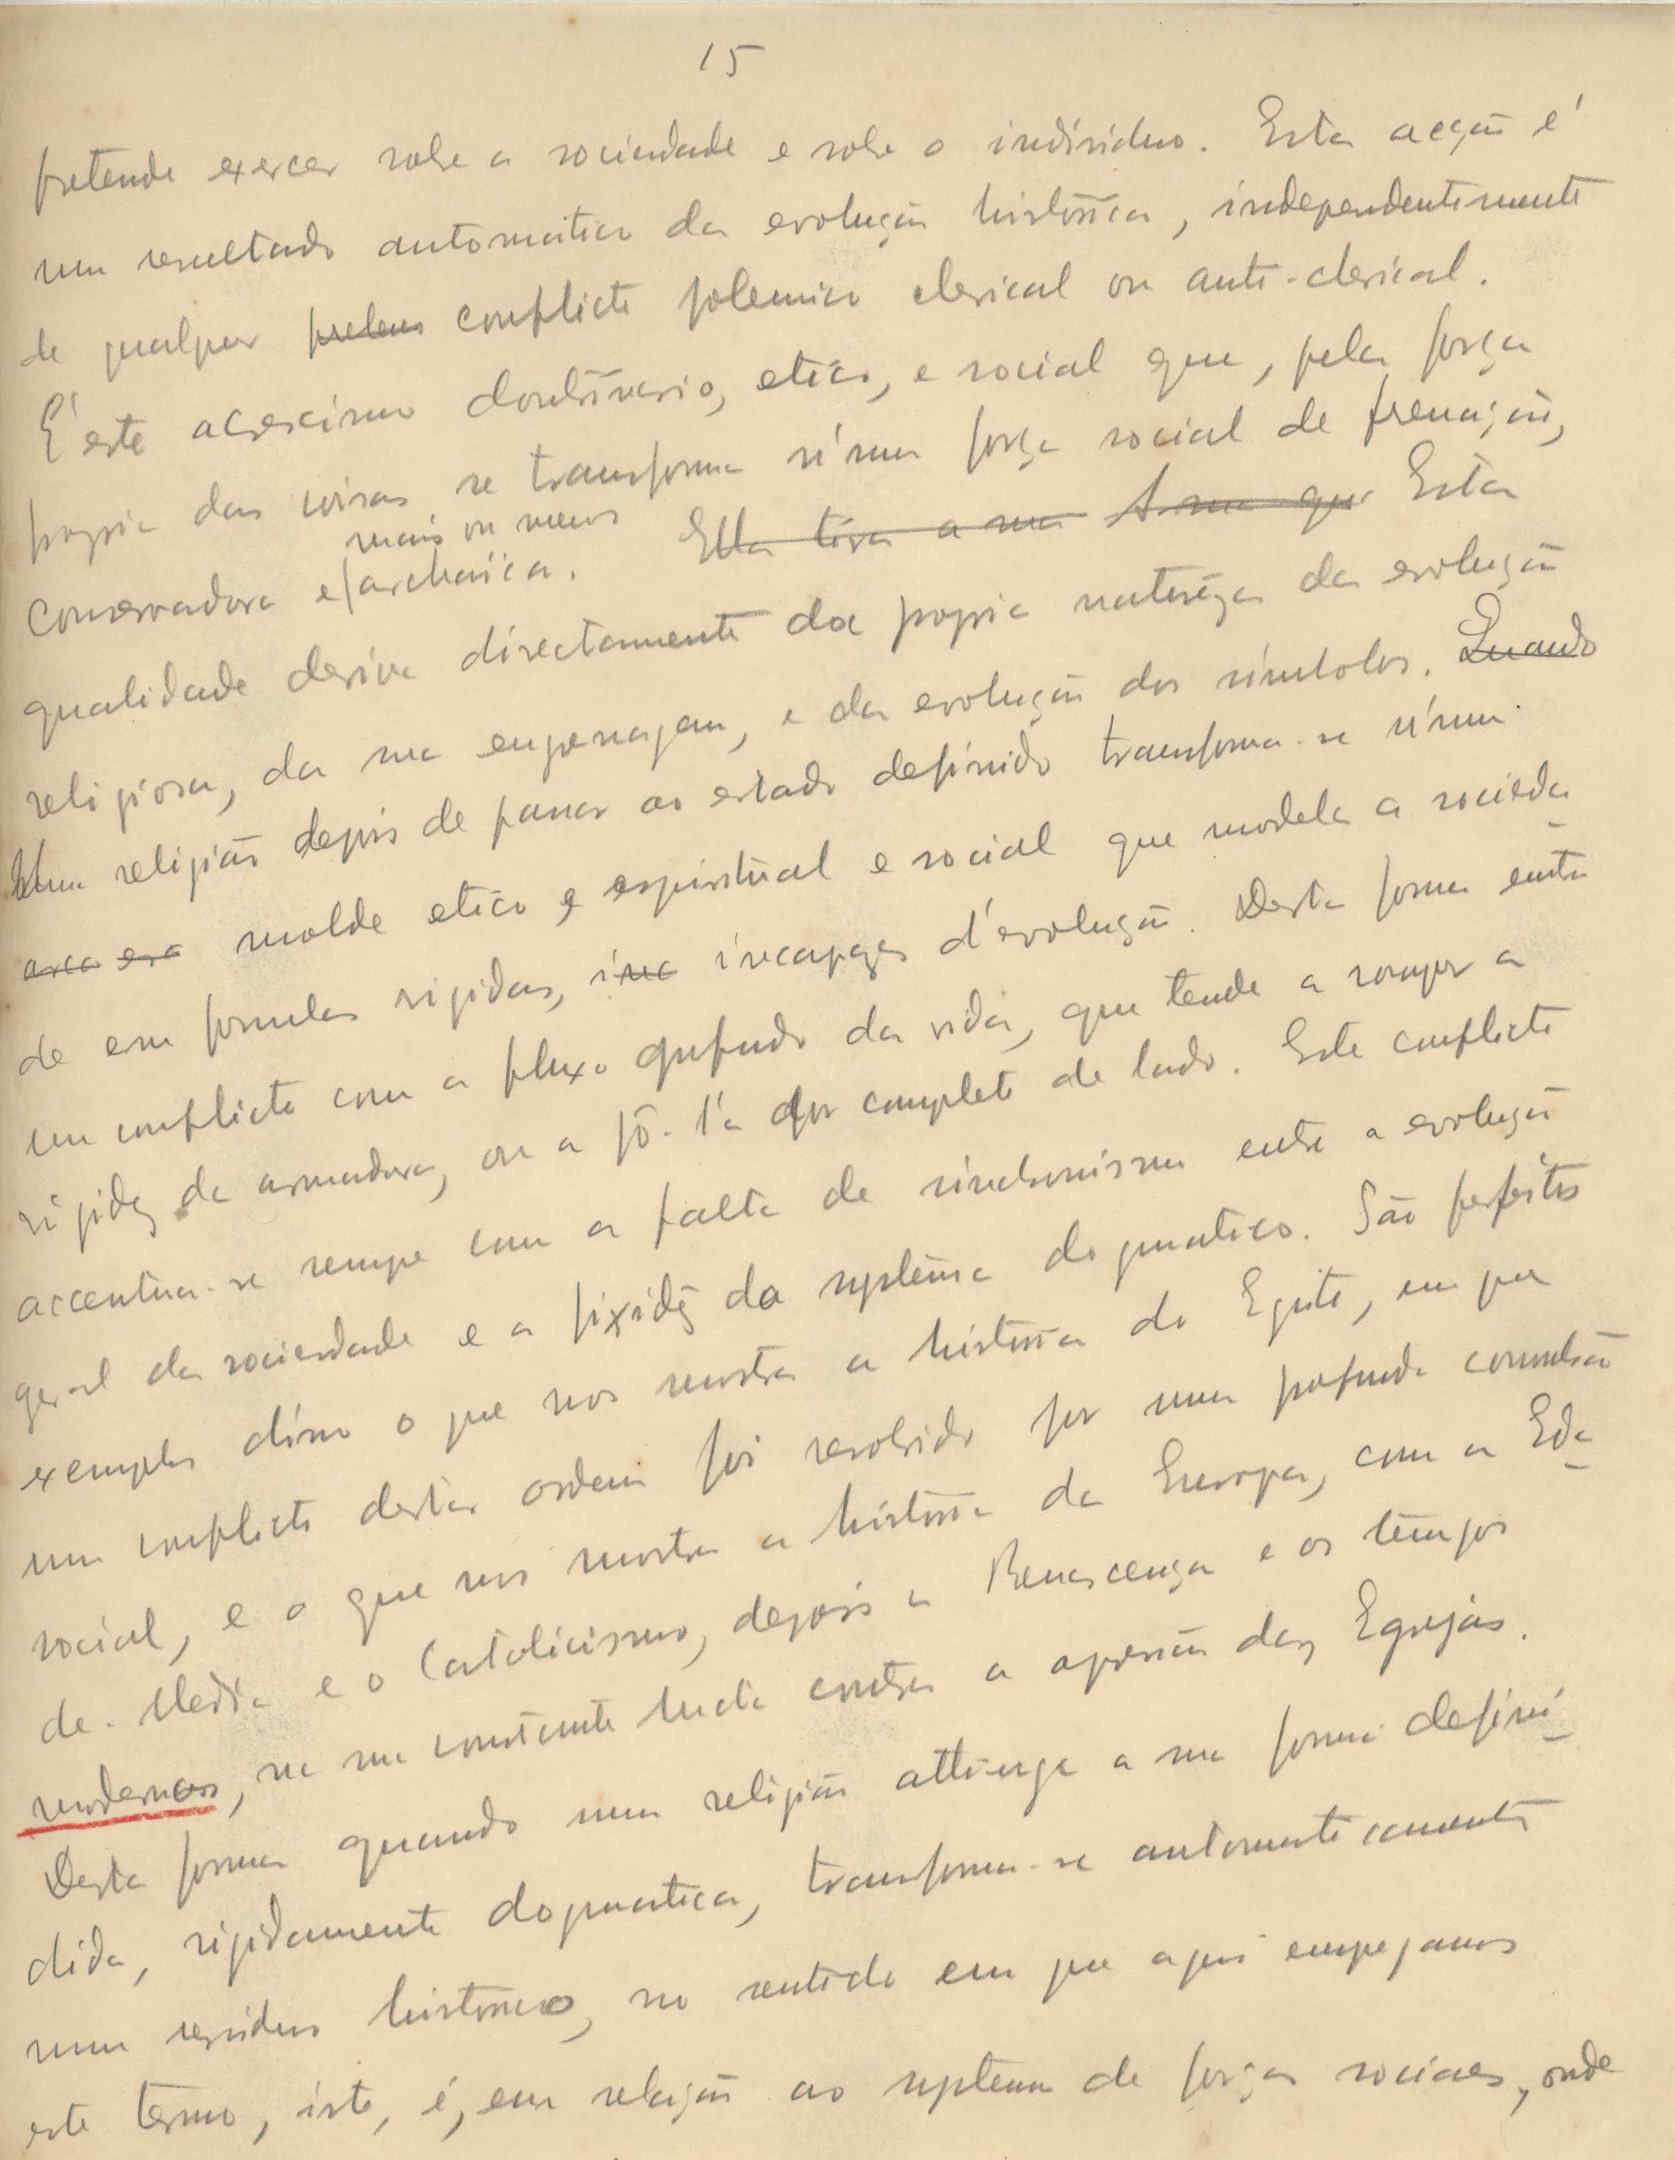 15
pretende exercer sobre a sociedade e sobre o individuo. Esta acção é
um resultado automatico da evolução histórica, independentemente
de qualquer conflicto polemico clerical ou anti-clerical.
É este acrescimo doutrinario, etico, e social que, pela força
propria das coisas se transforma n'uma força social de frenação,
mais ou menos
conservadora e archaica. Ella tira a sua A sua que Esta
qualidade deriva directamente da propria natureza da evolução
religiosa, da sua engrenagem, e da evolução dos simbolos. Quando
Uma religião depois de passar ao estado definido transforma-se n'um
molde etico e espiritual e social que modela a socieda
de em formulas rigidas, incapazes d'evolução. Desta forma entra
em conflicto com o fluxo profundo da vida, que tende a romper a
rigidez da armadura, ou a pô-l'a por completo de lado. Este conflicto
accentua-se sempre com a falta de sinchronismo entre a evolução
geral da sociedade e a fixidez do systema dogmatico. São perfeitos
exemplos disso o que nos mostra a historia do Egito, em que
um conflicto desta ordem foi resolvido por uma profunda convulsão
social, e o que nos mostra a historia da Europa, com a Eda
de-Media e o Catolicismo, depois a Renascença e os tempos
modernos, na sua constante lucta contra a opressão das Egrejas.
Desta forma quando uma religião attinge a sua forma defini
dida, rigidamente dogmatica, transforma-se automaticamente
num residuo historico, no sentido em que aqui empregamos
este termo, isto, é, em relação ao systema de forças sociaes, onde